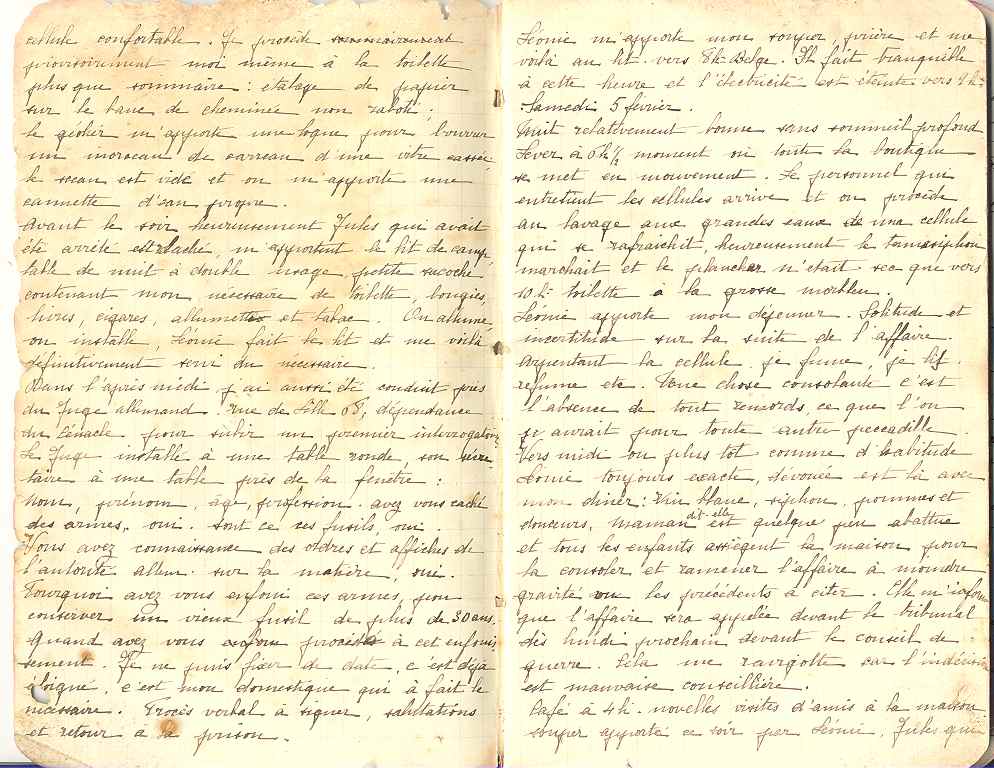 cellule confortable. Je procède sommairement
provisoirement moi même à la toilette
plus que sommaire : etalage de papier
sur le banc de cheminée non raboté ;
le géolier m'apporte une loque pour bourrer
un morceau de carreau d'une vitre cassée
le seau est vidé et on m'apporte une
cannette d'eau propre.
Avant le soir heureusement Jules qui avait
été arrêté est relaché, m'apportent le lit de camp,
table de nuit à double usage, petite sacoche
contenant mon nécessaire de toilette, bougies,
livres, cigares, allumettes et tabac. On allume,
on installe, Léonie fait le lit et me voilà
définitivement servi du nécessaire.
Dans l'après midi j'ai aussi été conduit près
du Juge allemand. rue de Lille 68, dépendance
du Cénacle pour subir un premier interrogatoire
Le Juge installé à une table ronde, son sécré-
taire à une table près de la fenêtre :
Nom, prénom, âge, profession. avez vous caché
des armes, oui. sont ce ces fusils, oui.
Vous avez connaissance des ordres et affiches de
l'autorité allem. sur la matière, oui.
Pourquoi avez vous enfoui ces armes, pour
conserver un vieux fusil de plus de 30 ans.
Quand avez vous procédé à cet enfouis
sement. Je ne puis fixer de date, c'est déjà
éloigné, c'est mon domestique qui à fait le
nécessaire. Procès verbal à signer, salutations
et retour à la prison.
Léonie m'apporte mon souper, prière et me
voilà au lit vers 8h. Belge. Il fait tranquille
à cette heure et l'électricité est éteinte vers 9h.
Samedi 5 février.
Nuit relativement bonne sans sommeil profond
Lever à 6h ½ moment où toute la boutique
se met en mouvement. Le personnel qui
entretient les cellules arrive et on procède
au lavage aux grandes eaux de una cellule
qui se rafraichit, heureusement le
marchait et le plancher n'était sec que vers
10 h. toilette à la grosse morbleu.
Léonie apporte mon déjeuner. Solitude et
incertitude sur la suite de l'affaire.
Arpentant la cellule je fume, je lis
refume etc. Une chose consolante c'est
l'absence de tout remords, ce que l'on
aurait pour toute autre peccadille.
Vers midi ou plus tôt comme d'habitude
Léonie toujours exacte, dévouée est là avec
mon diner. Vin blanc, siphon, pommes et
douceurs, Maman dit-elle est quelque peu abattue
et tous les enfants assiègent la maison pour
la consoler et ramener l'affaire à moindre
gravité vu les précédents à citer. Elle m'informe
que l'affaire sera appelée devant le tribunal
dès lundi prochain devant le conseil de
guerre. Cela me ravigolte car l'indécision
est mauvaise conseillière.
Café à 4 h. novelles visites d'amis à la maison
souper apporté ce soir par Léonie. Jules qui